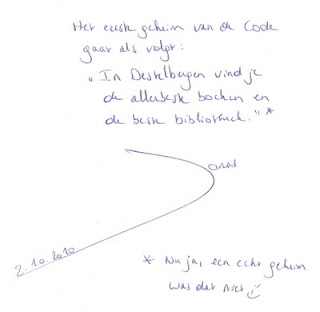 Het eerste geheim van de Code
gaat als volgt:
„In Destelbergen vind je
de allerbeste boeken en
de beste bibliotheek." *
2.10.2010
* Nu ja, een echt geheim
was dat niet